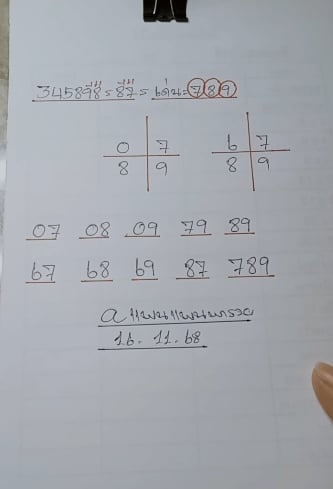 345898 = 87 = เด่น = 789
0 7
8 9
6 7
8 9
07 08 09 79 89
67 68 69 87 789
16. 11. 68